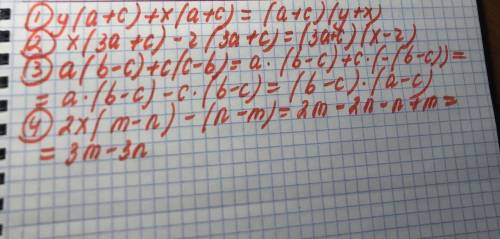 ① y(a+c)+x(a+c)=(a+c)(y+x)
② x(3a+c)-2(3a+c)=(3a+c)(x-2)
③ a(b-c)+c(c-b)=a·(b-c)+c·(-(b-c))=
=a·(b-c)-c·(b-c)=(b-c)·(a-c)
④ 2x(m-n)-(n-m)=2m-2n-n+m=
=3m-3n